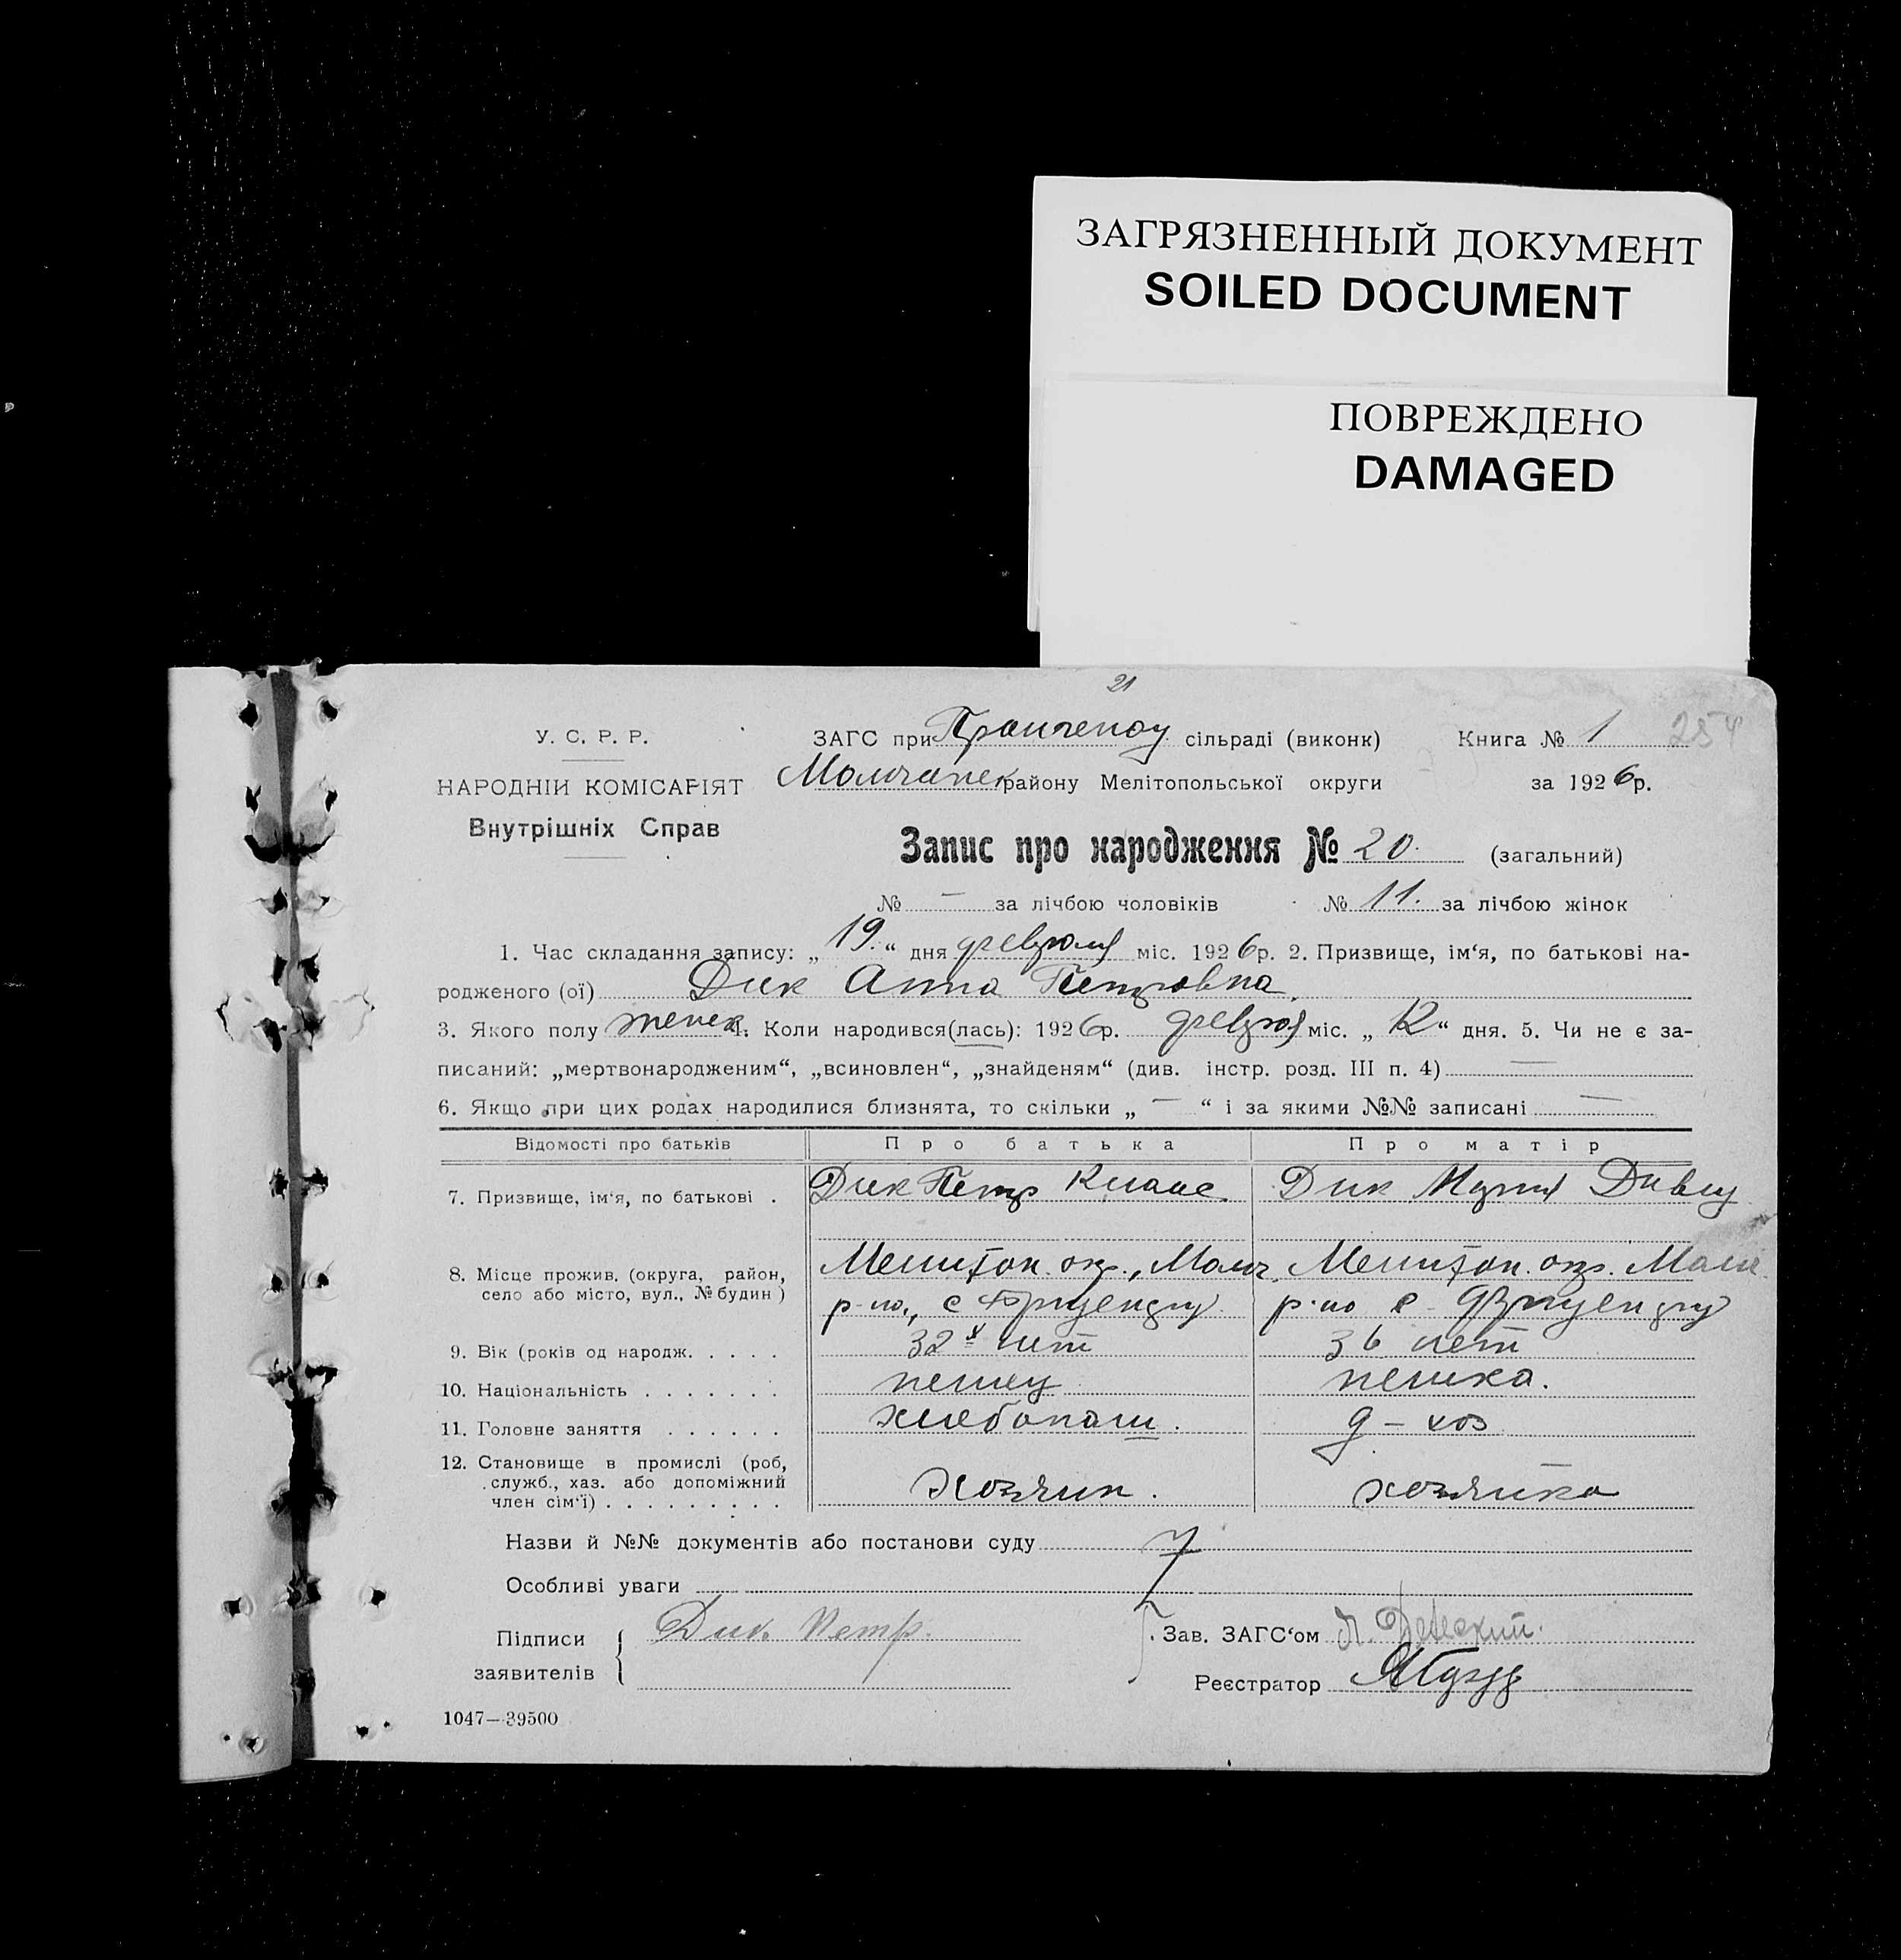 ЗАГРЯЗНЕННЫЙ ДОКУМЕНТ
SOILED DOCUMENT
ПОВРЕЖДЕНО
DAMAGED
21
У. С. Р. Р. ЗАГС при сільраді (виконк) Книга № 1 254
НАРОДНІЙ КОМІСАРІЯТ Молочанск району Мелітопольської округи за 1926р.
Внутрішніх Справ
Запис про народження № 20. (загальний)
№ — за лічбою чоловіків № 11. за лічбою жінок
1. Час складання запису: „ 19. “ дня февраля міс. 1926р. 2. Призвище, ім‘я, по батькові на-
родженого (ої) Дик Анна Петровна.
3. Якого полу женск. 4. Коли народився(лась): 1926р. февраля міс. „ 12 “ дня. 5. Чи не є за-
писаний: „мертвонародженим“, „всиновлен“, „знайденям“ (див. інстр. розд. III п. 4) —
6. Якщо при цих родах народилися близнята, то скільки „ — “ і за якими №№ записані —
Відомості про батьків Про батька Про матір
7. Призвище, ім‘я, по батькові . Дик Петр Клаас Дик Мария Давид
8. Місце прожив. (округа, район, Мелитоп. окр., Молоч. Мелитоп. окр. Молоч.
село або місто, вул., № будин ) р-на, с р-на с
9. Вік (років од народж. . . . . 32 лет 36 лет
10. Національність . . . . . . . немец немка.
11. Головне заняття . . . . . . хлебопаш. д - хоз
12. Становище в промислі (роб,
служб., хаз. або допоміжний Хозяин. хозяйка
член сім‘ї) . . . . . . . . .
Назви й №№ документів або постанови суду
Особливі уваги
Підписи Дик Петр. Зав. ЗАГС‘ом
заявителів Реєстратор
1047—39500